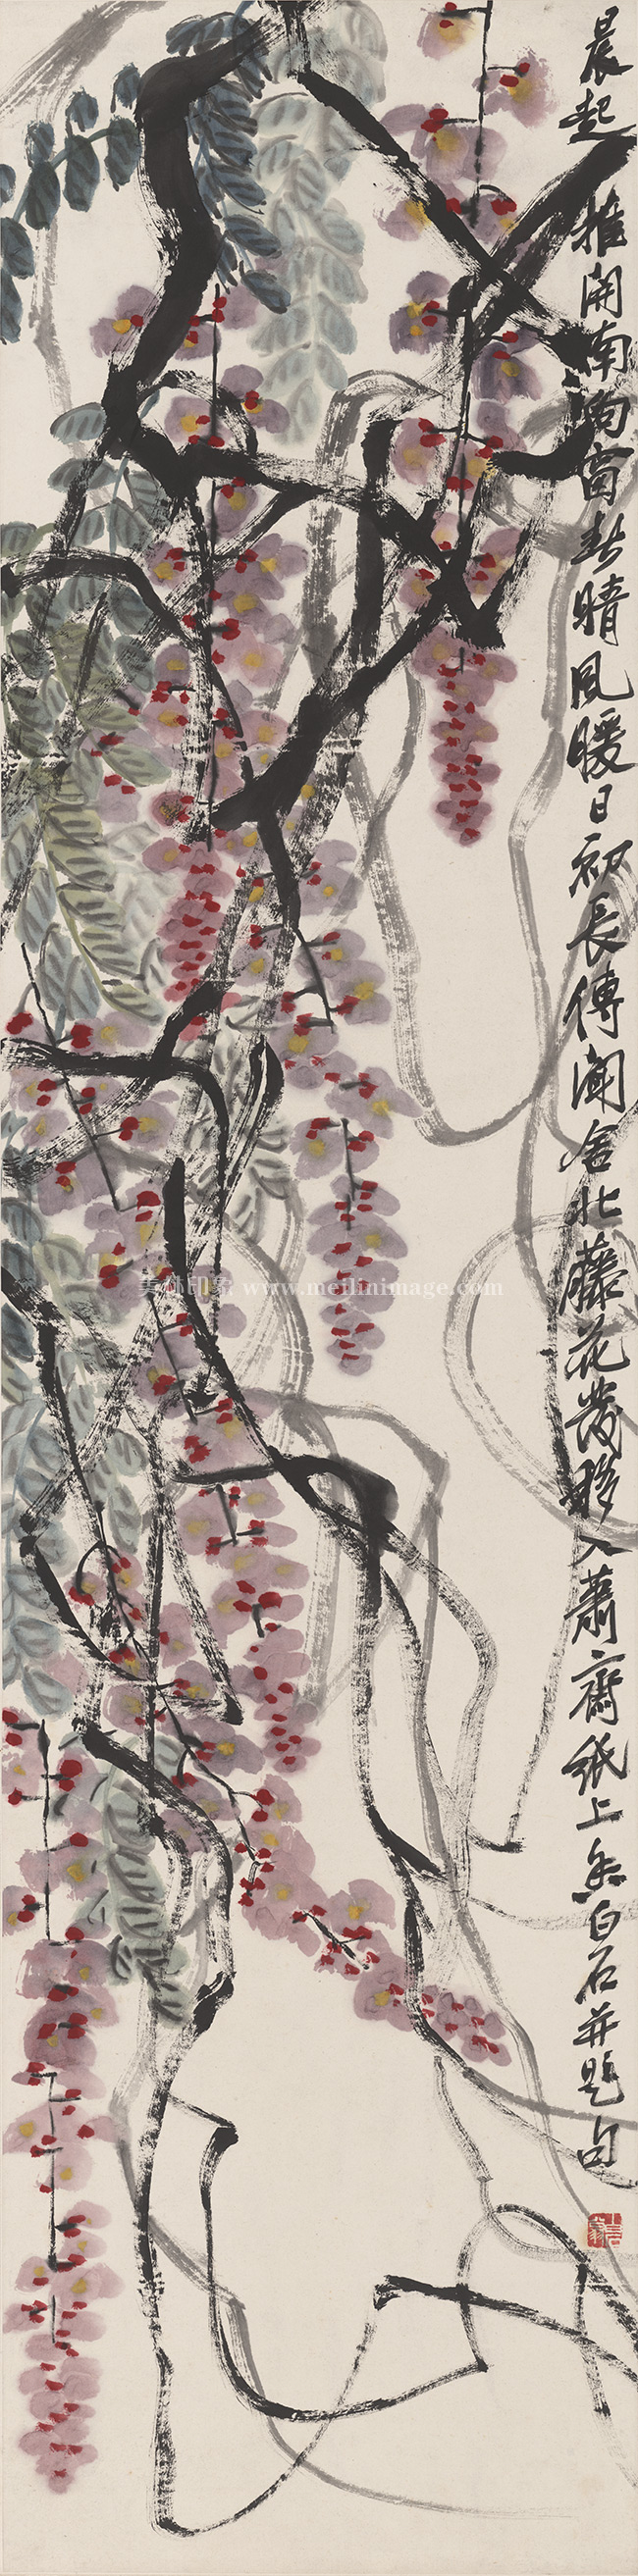 晨起推開南向窗春晴風暖日初長傳聞舍北藤花發移入蕭齋紙上香白石并題句
美林印象 www.meilinimage.com